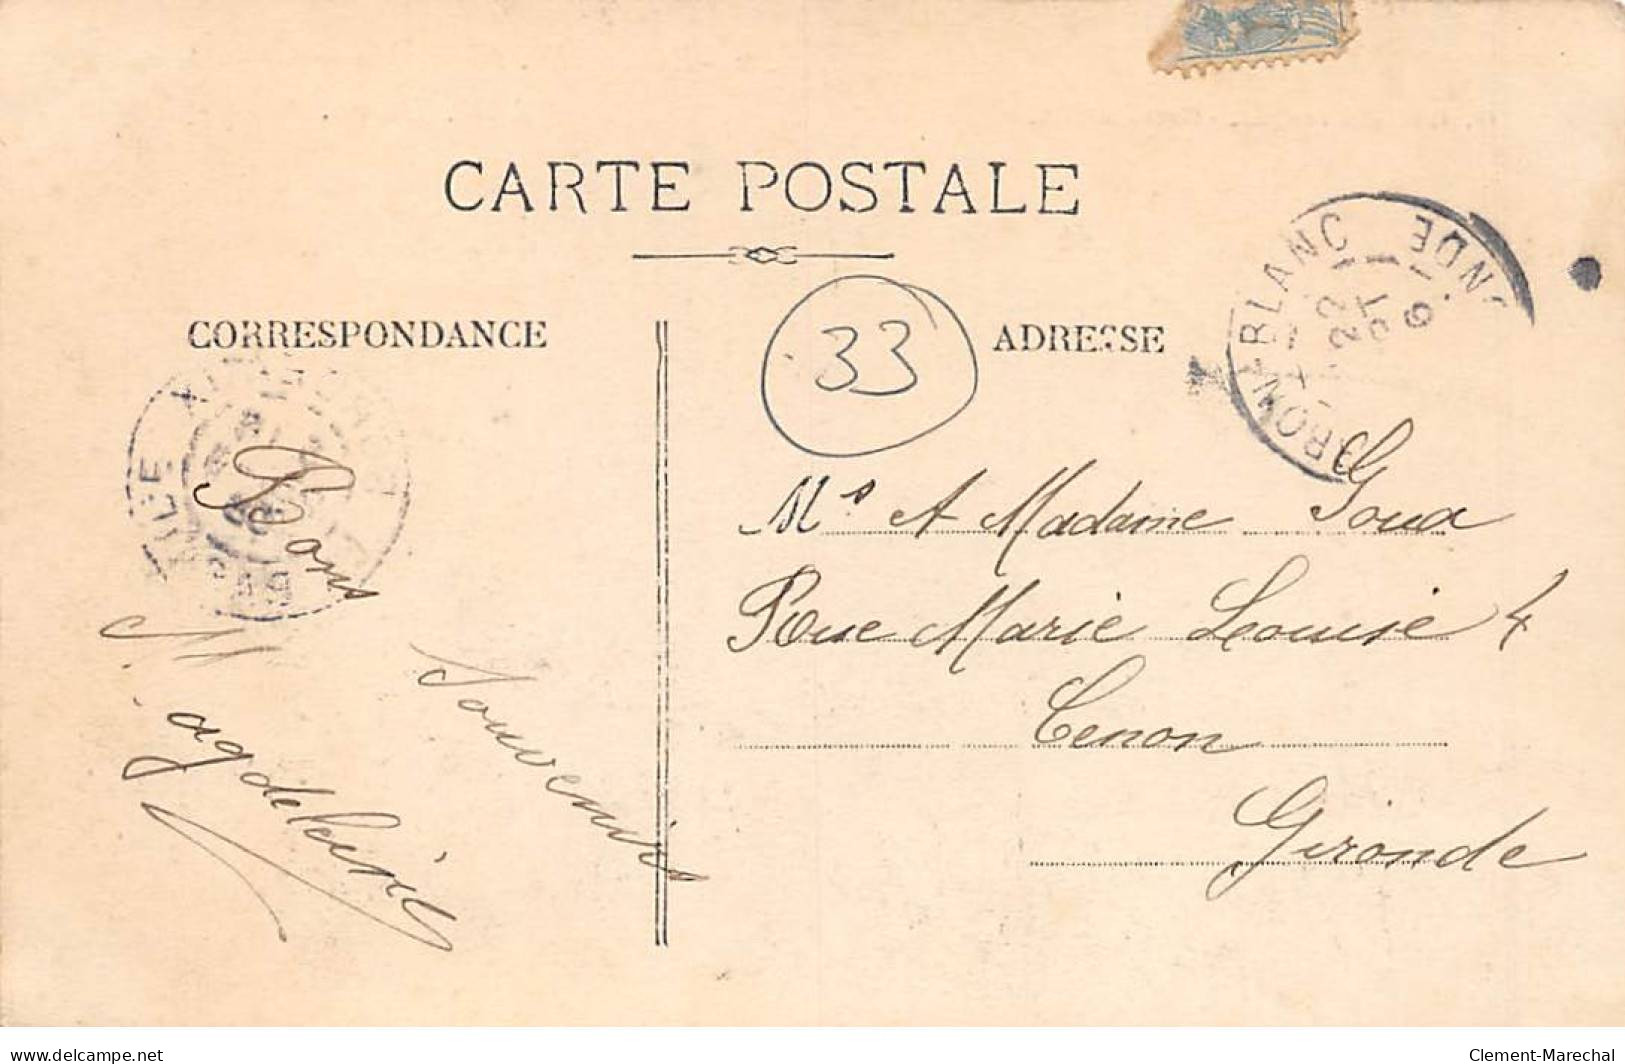 CARTE POSTALE
CORRESPONDANCE
ADRESSE
33
BLANC
NDE
22
Bons
Souvenirs
Magdeleine
Ms A Madame Goua
Rue Marie Louise 4
Cenon
Gironde
www.delcampe.net
Clement-Marechal